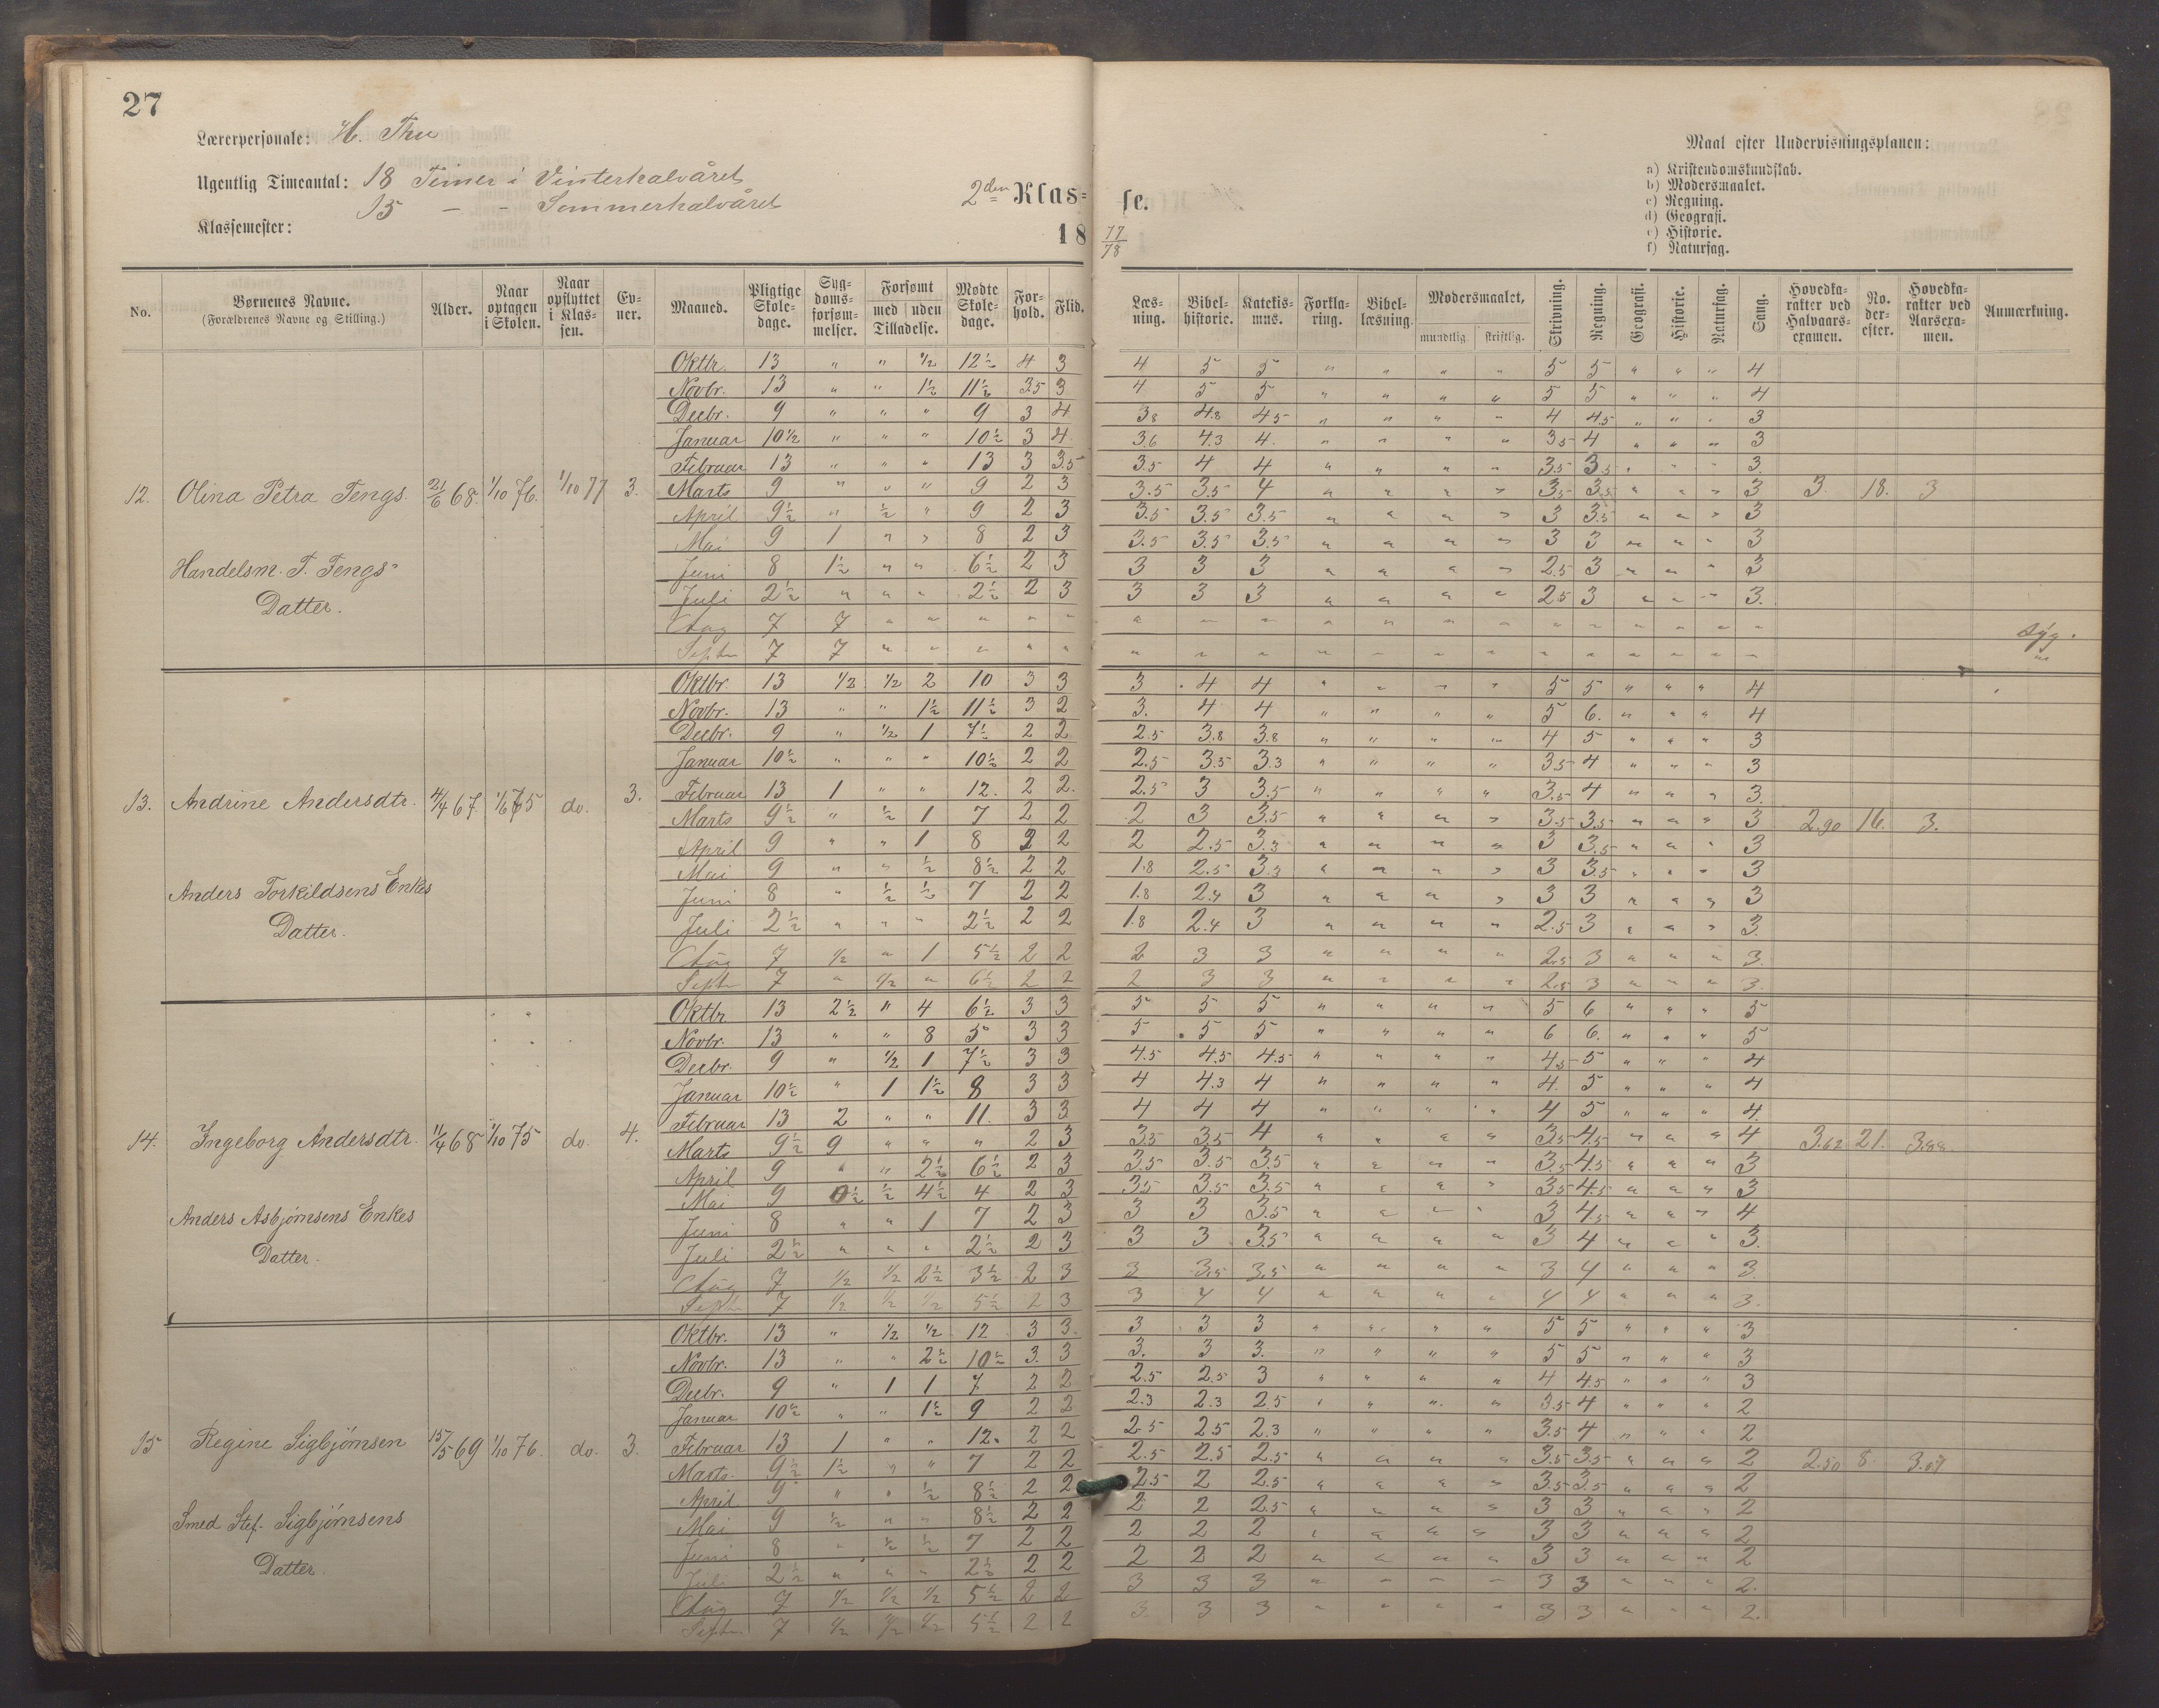 27
Lærerpersonale: H. Thu
Ugentlig Timeantal: 18 Timer i Vinterhalvåret
15 - - Sommerhalvåret
Klassemester:
2den Klas= se.
18 77/78
Maal efter Undervisningsplanen:
a) Kristendomskundskab.
b) Modersmaalet.
c) Regning.
d) Geografi.
e) Historie.
f) Naturfag.
No. | Børnenes Navne. (Forældrenes Navne og Stilling.) | Alder. | Naar optagen i Skolen. | Naar opflyttet i Klas- sen. | Ev- ner. | Maaned. | Pligtige Skole- dage. | Syg- doms- forsøm- melser. | Forsømt med uden Tilladelse. | Mødte Skole- dage. | For- hold. | Flid. | Læs- ning. | Bibel- historie. | Katekis- mus. | Forkla- ring. | Bibel- læsning | Modersmaalet, mundtlig. skriftlig. | Skrivning. | Regning. | Geografi. | Historie. | Naturfag. | Sang. | Hovedka- rakter ved Halvaars- examen. | No. der- efter. | Hovedka- rakter ved Aarsexa- men. | Anmærkning.
Oktbr. 13 " " 1/2 12 1/2 4 3 4 5 5 " " " " 5 5 " " " 4
Novbr. 13 " " 1 1/2 11 1/2 3.5 3 4 5 5 " " " " 5 5 " " " 4
Decbr. 9 " " " 9 3 4 3.8 4.8 4.5 " " " " 4 4.5 " " " 3
Januar 10 1/2 " " " 10 1/2 3 4 3.6 4.3 4. " " " " 3.5 4 " " " 3
Februar 13 " " " 13 3 3.5 3.5 4 4 " " " " 3.5 3.5 " " " 3.
12. Olina Petra Tengs. 21/6 68. 1/10 76. 1/10 77 3. Marts 9 " " " 9 2 3 3.5 3.5 4 " " " " 3.5 3.5 " " " 3 3. 18. 3
April 9 1/2 " 1/2 " 9 2 3 3.5 3.5 3.5 " " " " 3 3.5 " " " 3
Mai 9 1 " " 8 2 3 3.5 3.5 3.5 " " " " 3 3 " " " 3
Handelsm. T. Tengs- Juni 8 1 1/2 " " 6 1/2 2 3 3 3 3 " " " " 2.5 3 " " " 3
Datter. Juli 2 1/2 " " " 2 1/2 2 3 3 3 3 " " " " 2.5 3 " " " 3.
Aug 7 7 " " " " " " " " " " " " " " " " " " Syg.
Septr 7 7 " " " " " " " " " " " " " " " " " " "
Oktbr. 13 1/2 1/2 2 10 3 3 3 4 4 " " " " 5 5 " " " 4
Novbr. 13 " " 1 1/2 11 1/2 3 2 3. 4 4 " " " " 5 6. " " " 4
Decbr. 9 " 1/2 1 7 1/2 2 2 2.5 3.8 3.8 " " " " 4 5 " " " 3
Januar 10 1/2 " " " 10 1/2 2 2 2.5 3.5 3.3 " " " " 3.5 4 " " " 3
13. Andrine Andersdtr. 4/4 67. 1/6 75 do. 3. Februar 13 1 " " 12. 2 2. 2.5 3 3.5 " " " " 3.5 4 " " " 3.
Marts 9 1/2 " 1/2 1 7 2 2 2 3 3.5 " " " " 3.5 3.5 " " " 3 2.90 16. 3.
April 9 " " 1 8 2 2 2 2.5 3.3 " " " " 3 3.5 " " " 3
Mai 9 " " 1/2 8 1/2 2 2 1.8 2.5 3.3 " " " " 3 3.5 " " " 3
Anders Torkildsens Enkes Juni 8 " 1/2 1/2 7 2 2 1.8 2.4 3 " " " " 3 3 " " " 3
Datter. Juli 2 1/2 " " " 2 1/2 2 2 1.8 2.4 3 " " " " 2.5 3 " " " 3.
Aug 7 1/2 " 1 5 1/2 2 2 2 3 3 " " " " 2.5 3 " " " 3.
Septr 7 " 1/2 " 6 1/2 2 2 2 3 3 " " " " 2.5 3 " " " 3.
Oktbr 13 2 1/2 " 4 6 1/2 3 3 5 5 5 " " " " 5 6 " " " 5
Novbr. 13 " " 8 5 3 3 5 5 5 " " " " 6 6. " " " 5
Decbr. 9 " 1/2 1 7 1/2 3 3 4.5 4.5 4.5 " " " " 4.5 5 " " " 4
Januar 10 1/2 " 1 1 1/2 8 3 3 4 4.3 4 " " " " 4. 5 " " " 4
Februar 13 2 " " 11. 3 3 4 4 4 " " " " 4 5 " " " 4
14. Ingeborg Andersdtr. 11/4 68 1/10 75 do. 4. Marts 9 1/2 9 " " " 2 3 3.5 3.5 4 " " " " 3.5 4.5 " " " 4 3.62 21. 3.88.
April 9 " " 2 1/2 6 1/2 2 3 3.5 3.5 3.5 " " " " 3.5 4.5 " " " 3
Mai 9 0 1/2 1/2 4 1/2 4 2 3 3.5 3.5 3.5 " " " " 3.5 4.5 " " " 3
Anders Asbjørnsens Enkes Juni 8 " " 1 7 2 3 3 3 3.5 " " " " 3 4.5 " " " 4
Datter. Juli 2 1/2 " " " 2 1/2 2 3 3 3 3.5 " " " " 3 4 " " " 3.
Aug 7 1/2 1/2 2 1/2 3 1/2 2 3 3 3.5 3.5 " " " " 3 4 " " " 3.
Septr 7 1/2 1/2 1/2 5 1/2 2 3 3 4 4 " " " " 4 4 " " " 3.
Oktbr. 13 " 1/2 1/2 12 3 3. 3 3 3 " " " " 5 5 " " " 3
Novbr. 13 " " 2 1/2 10 1/2 3. 3 3. 3 3. " " " " 5 5 " " " 3
Decbr. 9 " 1 1 7 2 2 2.5 2.5 3 " " " " 4 4.5 " " " 3
Januar 10 1/2 " " 1 1/2 9 2 2 2.3 2.3 2.5 " " " " 3.5 4 " " " 2
15 Regine Sigbjørnsen 15/5 69 1/10 76. do. 3. Februar 13 1 " " 12. 2 2 2.5 2.5 2.3 " " " " 3.5 4 " " " 2
Marts. 9 1/2 1 1/2 " " 7 2 2 2.5 2.5 2.5 " " " " 3.5 3.5 " " " 2 2.50 8. 3.07
April 9 " " 1/2 8 1/2 2 2 2.5 2 2.5 " " " " 3.5 3.5 " " " 2
Smed Stef. Sigbjørnsens Mai 9 1/2 " " 8 1/2 2 2 2 2 2.5 " " " " 3 3 " " " 2
Juni 8 " 1/2 1/2 7 2 2 2 2 2 " " " " 3 3 " " " 2
Datter. Juli 2 1/2 " " " 2 1/2 2 2 2 2 2 " " " " 3 3 " " " 2
Aug 7 1/2 1/2 1/2 5 1/2 2 2 3 3 3 " " " " 3 3 " " " 2.
Septr 7 1/2 1/2 1/2 5 1/2 2 2 3 3 3 " " " " 3 3 " " " 2.